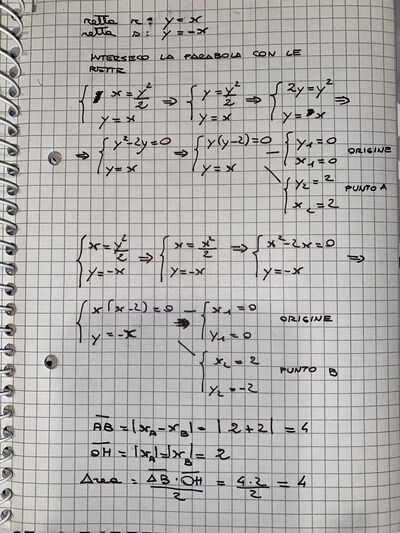 retta r: y = x
retta s: y = -x
INTERSECO LA PARABOLA CON LE
RETTE
{ x = y²/2 ; y = x ⇒ { y = y²/2 ; y = x ⇒ { 2y = y² ; y = x ⇒
⇒ { y² - 2y = 0 ; y = x ⇒ { y(y-2) = 0 ; y = x — { y₁ = 0 ; x₁ = 0 ORIGINE
{ y₂ = 2 ; x₂ = 2 PUNTO A
{ x = y²/2 ; y = -x ⇒ { x = x²/2 ; y = -x ⇒ { x² - 2x = 0 ; y = -x ⇒
{ x(x-2) = 0 ; y = -x — { x₁ = 0 ; y₁ = 0 ORIGINE
{ x₂ = 2 ; y₂ = -2 PUNTO B
AB = |x_A - x_B| = |2+2| = 4
OH = |x_A| = |x_B| = 2
Area = AB · OH / 2 = 4·2 / 2 = 4